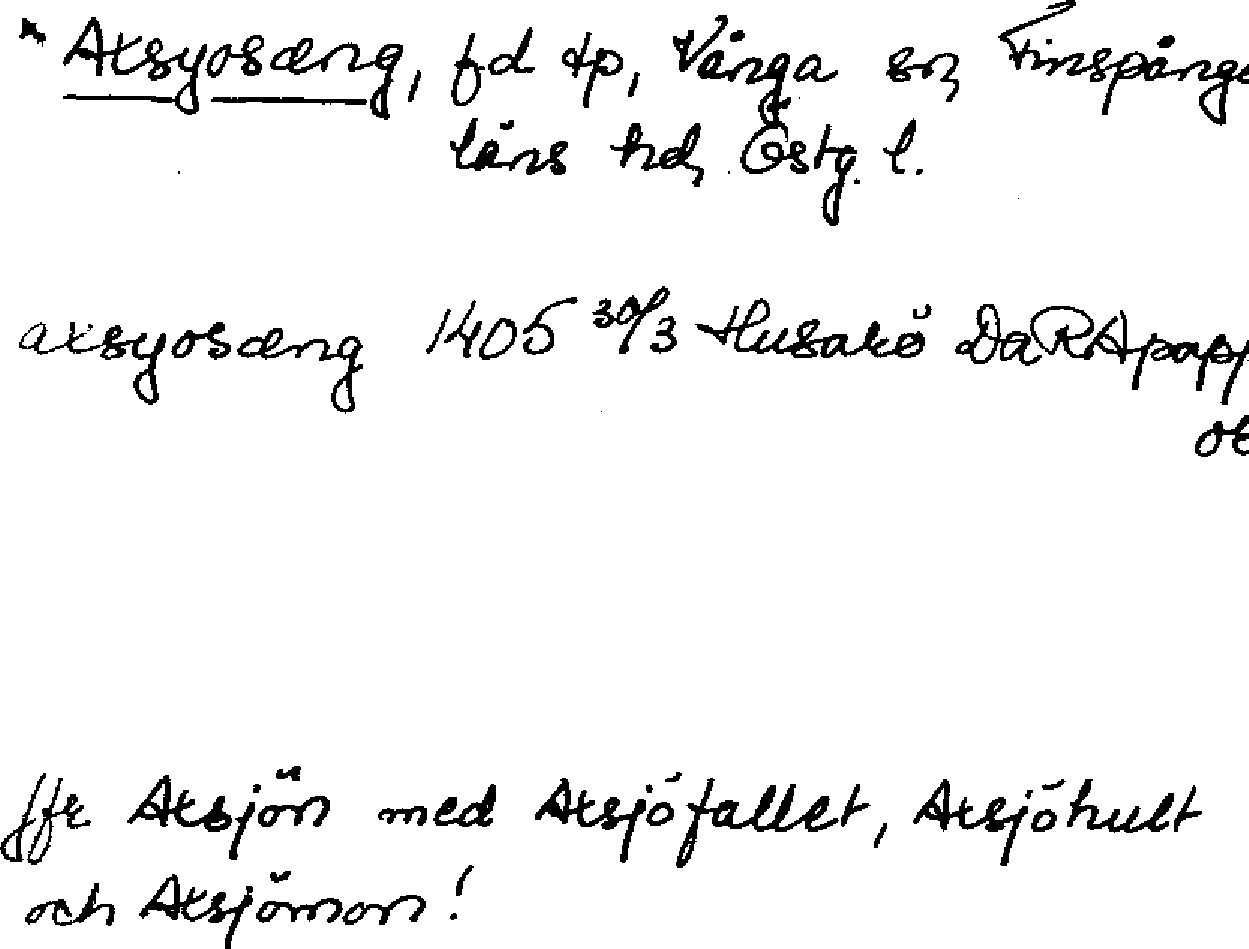 * Axsyosæng, fd tp, Vånga sn, Finspånga
läns hd, Östg. l.
axsyosæng 1405 30/3 Husarö DaRApapp
ot
Jfr Axsjön med Axsjöfallet, Axsjöhult
och Axsjömon!